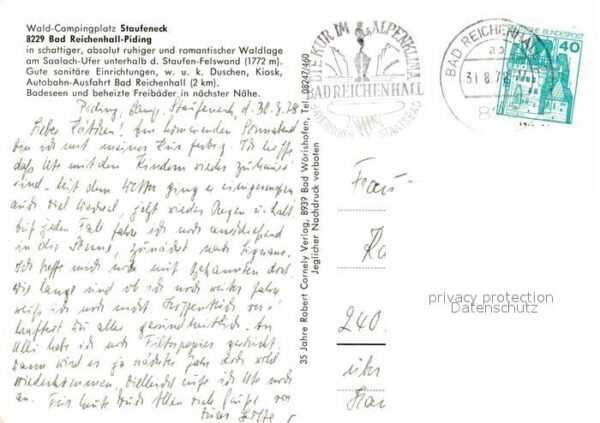 Wald-Campingplatz Staufeneck
8229 Bad Reichenhall-Piding
in schattiger, absolut ruhiger und romantischer Waldlage
am Saalach-Ufer unterhalb d. Staufen-Felswand (1772 m).
Gute sanitäre Einrichtungen, w. u. k. Duschen, Kiosk,
Autobahn-Ausfahrt Bad Reichenhall (2 km).
Badeseen und beheizte Freibäder in nächster Nähe.
Piding, Camp. Staufeneck, d. 30.8.78
Am kommenden Sonnabend
bin ich mit meiner Kur fertig. Ich hoffe,
daß Ute mit den Kindern wieder
sind. Mit dem Wetter ging es einigermaßen
viel Wechsel, jetzt wieder Regen u. kalt.
Auf jeden Fall fahre ich noch anschließend
in die Sonne, zunächst nach Lignano.
Ich treffe mich noch mit Bekannten dort.
Wie lange und ob ich noch weiter fahre
weiß ich noch nicht. Hoffentlich
Ihr alle gesundheitlich. An
Ulli habe ich
Dann wird es ja nächstes Jahr doch wohl
Vielleicht rufe ich Ute noch
an. Für heute Euch Allen viele Grüße von
35 Jahre Robert Cornely Verlag, 8939 Bad Wörishofen, Tel. 08247/460
Jeglicher Nachdruck verboten
DIE KUR IM ALPENKLIMA
BAD REICHENHALL
BAYERISCHES STAATSBAD
BAD REICHENHALL
31.8.78
8
DEUTSCHE BUNDESPOST
40
Frau
240
über
privacy protection
Datenschutz